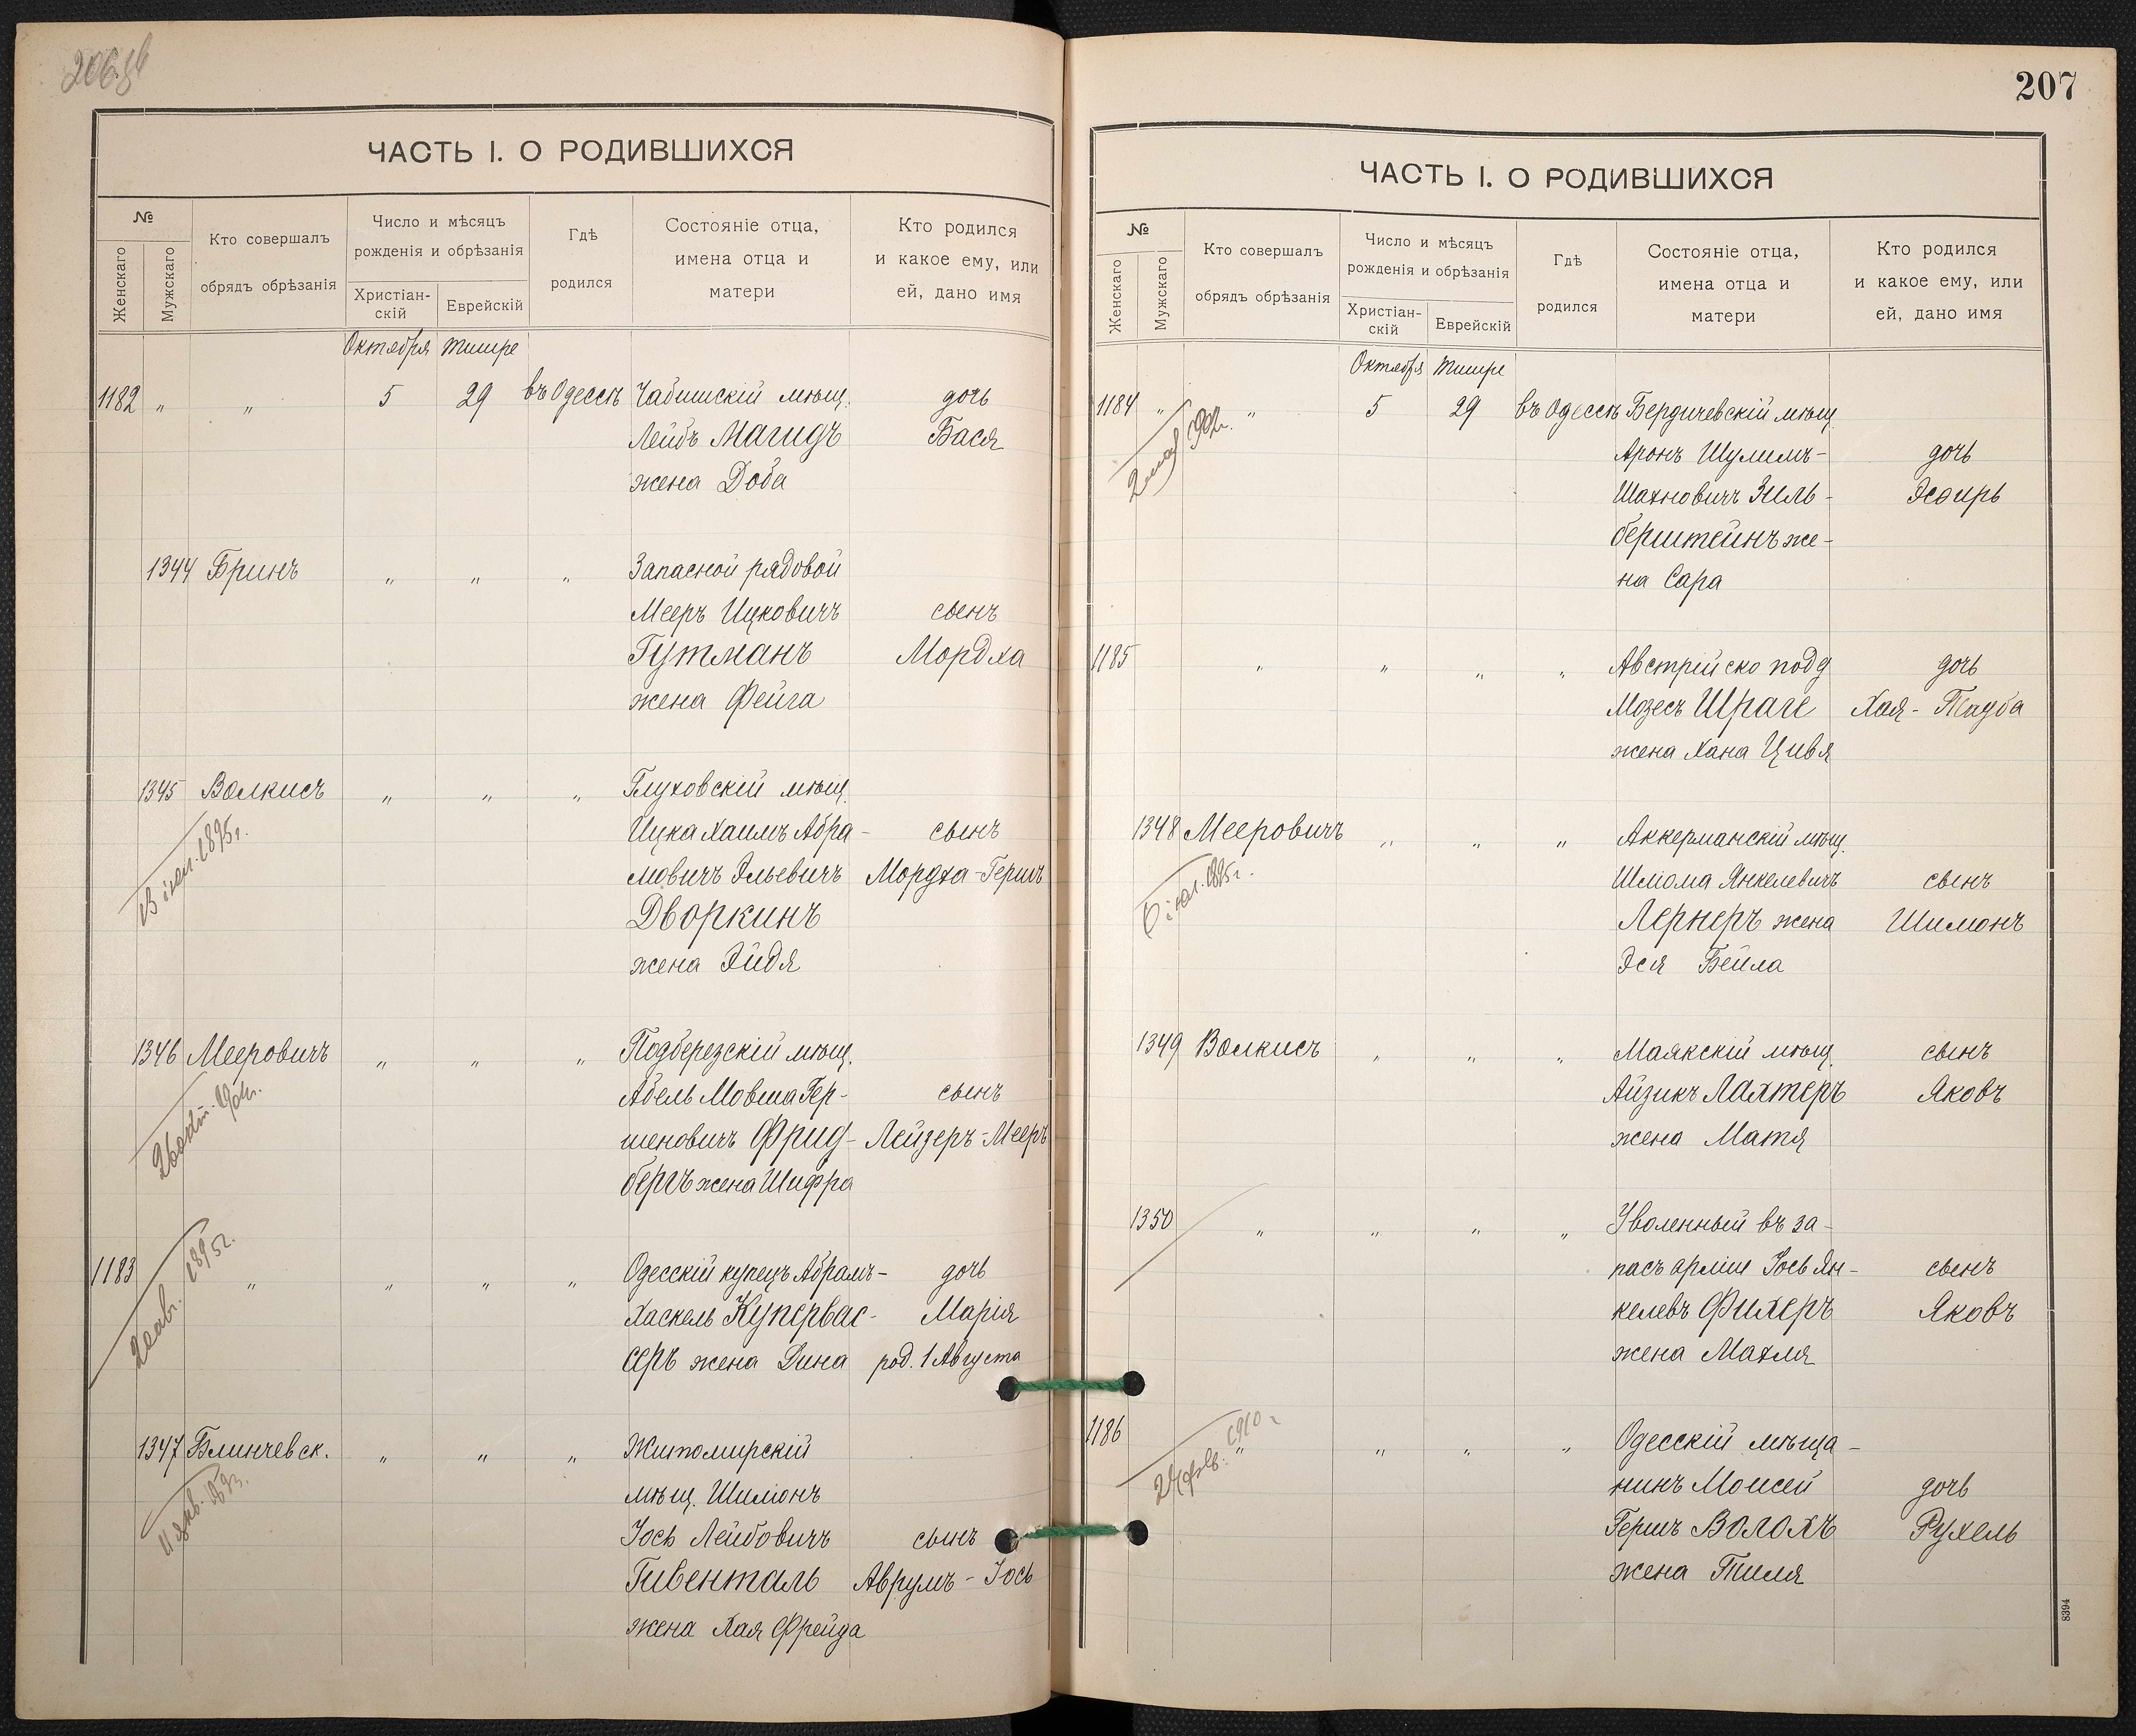 206об
ЧАСТЬ I. О РОДИВШИХСЯ
№
Женскаго
Мужскаго
Кто совершалъ
обрядъ обрѣзанія
Число и мѣсяцъ
рожденія и обрѣзанія
Христіан-
скій
Еврейскій
Гдѣ
родился
Состояніе отца,
имена отца и
матери
Кто родился
и какое ему, или
ей, дано имя
Октября Тишре
1182 „ „ 5 29 въ Одессѣ Чабишскій мѣщ. дочь
Лейбъ Магидъ Бася
жена Доба
1344 Бринъ „ „ „ Запасной рядовой
Мееръ Ицковичъ сынъ
Гутманъ Мордха
жена Фейга
1345 Волкисъ „ „ „ Глуховскій мѣщ.
Ицка Хаимъ Абра- сынъ
мовичъ Эльевичъ Мордха-Гершъ
Дворкинъ
жена Эйдя
13 іюл. 1895г.
1346 Мееровичъ „ „ „ Подберезскій мѣщ.
Абель Мовша Гер- сынъ
шеновичъ Фрид- Лейзеръ-Мееръ
бергъ жена Шифра
1183 „ „ „ „ Одесскій купецъ Абрамъ- дочь
Хаскель Купервас- Марія
серъ жена Дина род. 1 Августа
1895г.
1347 Блинчевск. „ „ „ Житомирскій
мѣщ. Шиміонъ
Іось Лейбовичъ сынъ
Гивенталь Аврумъ-Іось
жена Хая Фрейда
207
ЧАСТЬ I. О РОДИВШИХСЯ
№
Женскаго
Мужскаго
Кто совершалъ
обрядъ обрѣзанія
Число и мѣсяцъ
рожденія и обрѣзанія
Христіан-
скій
Еврейскій
Гдѣ
родился
Состояніе отца,
имена отца и
матери
Кто родился
и какое ему, или
ей, дано имя
Октября Тишре
1184 „ „ 5 29 въ Одессѣ Бердичевскій мѣщ.
Аронъ Шулимъ- дочь
Шахновичъ Зиль- Эсѳирь
берштейнъ же-
на Сара
1185 „ „ „ „ Австрійско подд
дочь
Мозесъ Шраге Хая-Тауба
жена Хана Цивя
1348 Мееровичъ „ „ „ Аккерманскій мѣщ.
Шліома Янкелевичъ сынъ
Лернеръ жена Шимонъ
Эся Бейла
6 іюл. 1895г.
1349 Волкисъ „ „ „ Маякскій мѣщ. сынъ
Айзикъ Лахтеръ Яковъ
жена Матя
1350 „ „ „ „ Уволенный въ за-
пасъ арміи Іось Ян- сынъ
келевъ Фихеръ Яковъ
жена Махля
1186 „ „ „ „ Одесскій мѣща-
нинъ Моисей дочь
Гершъ Волохъ Рухель
жена Тиля
24 фев. 1910г
8394